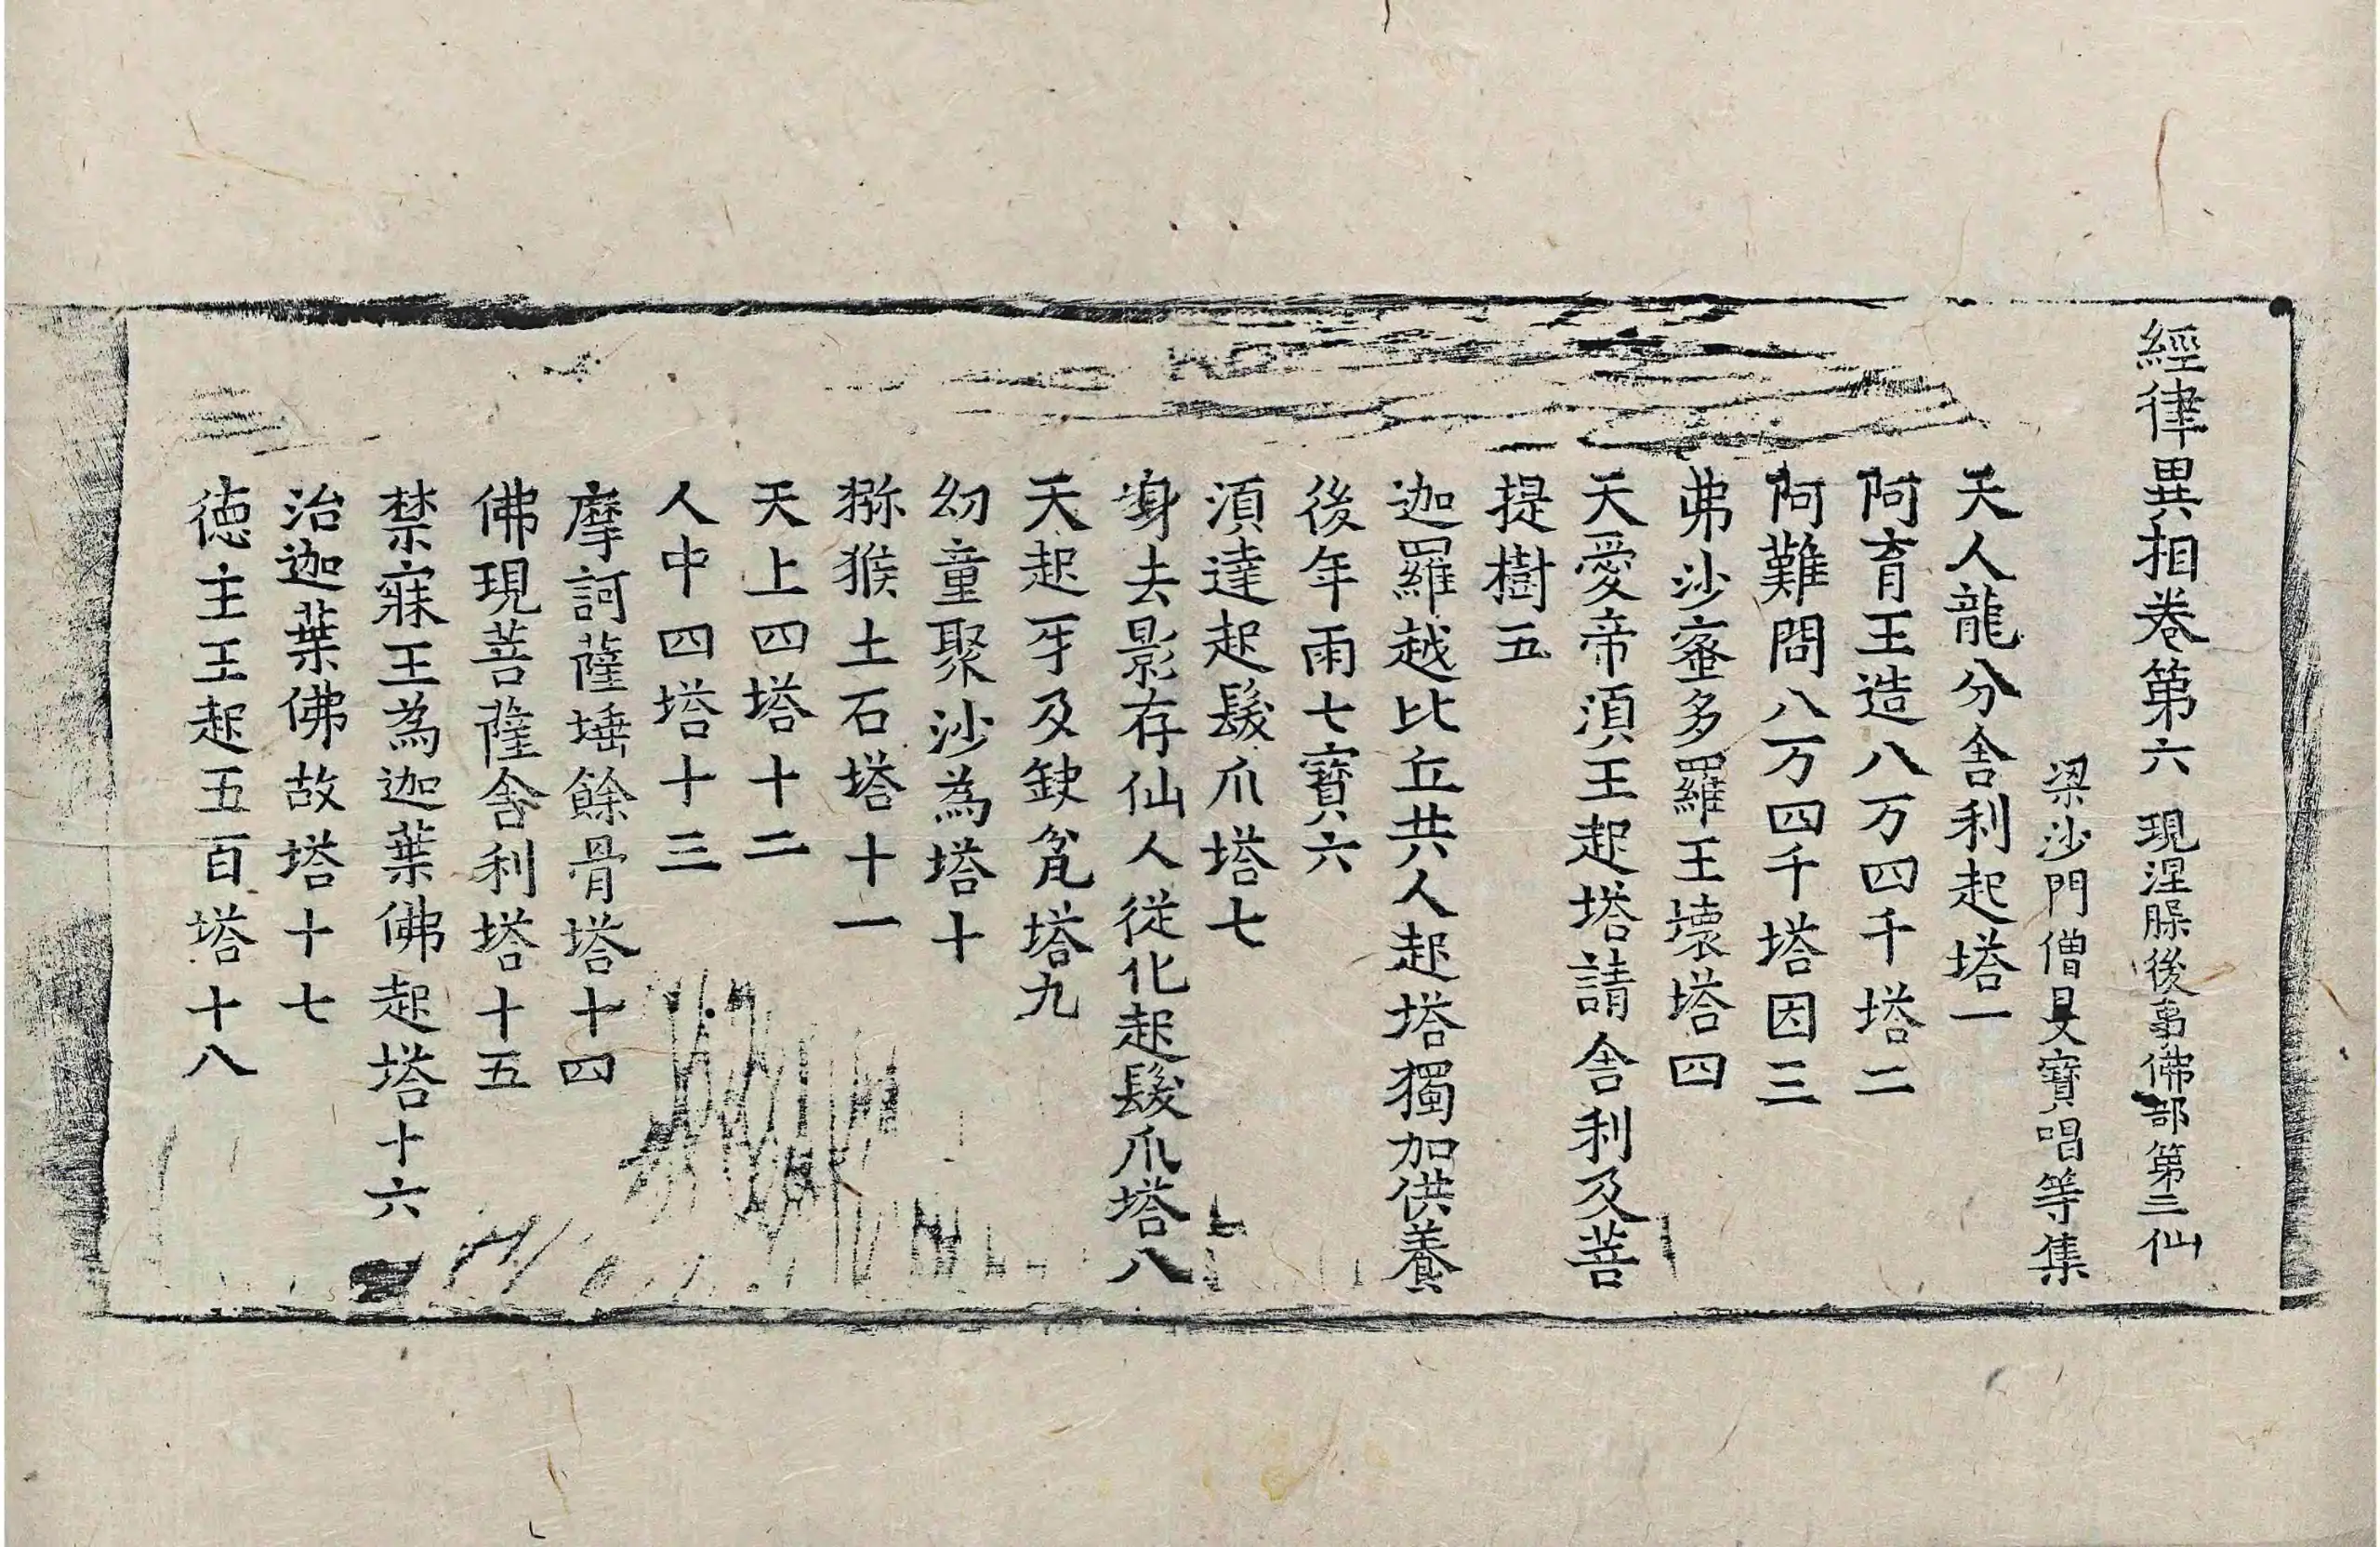 經律異相卷第六 現涅槃後事佛部第三 仙
梁沙門僧旻寶唱等集
天人龍分舍利起塔一
阿育王造八万四千塔二
阿難問八万四千塔因三
弗沙蜜多羅王壞塔四
天愛帝湏王起塔請舍利及菩
提樹五
迦羅越比丘共人起塔獨加供養
後年雨七寶六
湏達起髮爪塔七
身去影存仙人從化起髮爪塔八
天起牙及鈌瓫塔九
幼童聚沙為塔十
猕猴土石塔十一
天上四塔十二
人中四塔十三
摩訶薩埵餘骨塔十四
佛現菩薩舍利塔十五
禁寐王為迦葉佛起塔十六
治迦葉佛故塔十七
德主王起五百塔十八